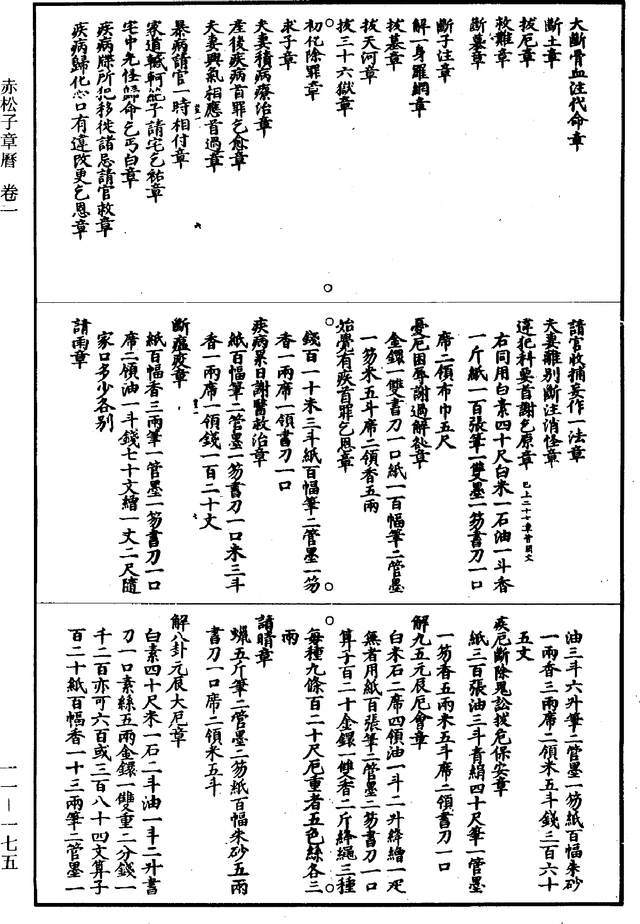 赤松子章曆 卷一
一一—一七五
大斷骨血注代命章
斷土章
拔厄章
救難章
斷墓章
斷子注章
解一身羅網章
拔墓章
拔天河章
拔三十六獄章
初化除罪章
求子章
夫妻積病療治章
產後疾病首罪乞愈章
夫妻興氣相應首過章
暴病請官一時相付章
家道轗軻葅子請宅乞祐章
宅中光怪歸命乞丐白章
疾病牒所犯移徙諸忌請官救章
疾病歸化心口有違改更乞恩章
請官收捕妄作一法章
夫妻離別斷注消怪章
違犯科要首謝乞原章 已上二十七章皆闕文
右同用白素四十尺白米一石油一斗香
一斤紙一百張筆一雙墨一笏書刀一口
席二領布巾五尺
憂厄困辱謝過解訟章
金鐶一雙書刀一口紙一百幅筆二管墨
一笏米五斗席二領香五兩
始覺有疾首罪乞恩章
錢百一十米三斗紙百幅筆二管墨一笏
香一兩席一領書刀一口
疾病累日謝醫救治章
紙百幅筆二管墨一笏書刀一口米三斗
香一兩席一領錢一百二十文
斷瘟疫章
紙百幅香三兩筆一管墨一笏書刀一口
席二領油一斗錢七十文繒一丈二尺隨
家口多少各別
請雨章
油三斗六升筆二管墨一笏紙百幅朱砂
一兩香三兩席二領米五斗錢三百六十
五文
疾厄斷除鬼訟拔危保安章
紙三百張油三斗青絹四十尺筆一管墨
一笏香五兩米五斗席二領書刀一口
解九五元辰厄會章
白米石二席四領油一斗二升絳繒一疋
無者用紙百張筆二管墨二笏書刀一口
算子百二十金鐶一雙香二斤絳繩三種
每種九條百二十尺厄重者五色絲各三
兩
請晴章
蠟五斤筆二管墨二笏紙百幅朱砂五兩
書刀一口席二領米五斗
解八卦元辰大厄章
白素四十尺米一石二斗油一斗二升書
刀一口素絲五兩金鐶一雙重二分錢一
千二百亦可六百或三百八十四文算子
百二十紙百幅香一十三兩筆二管墨一